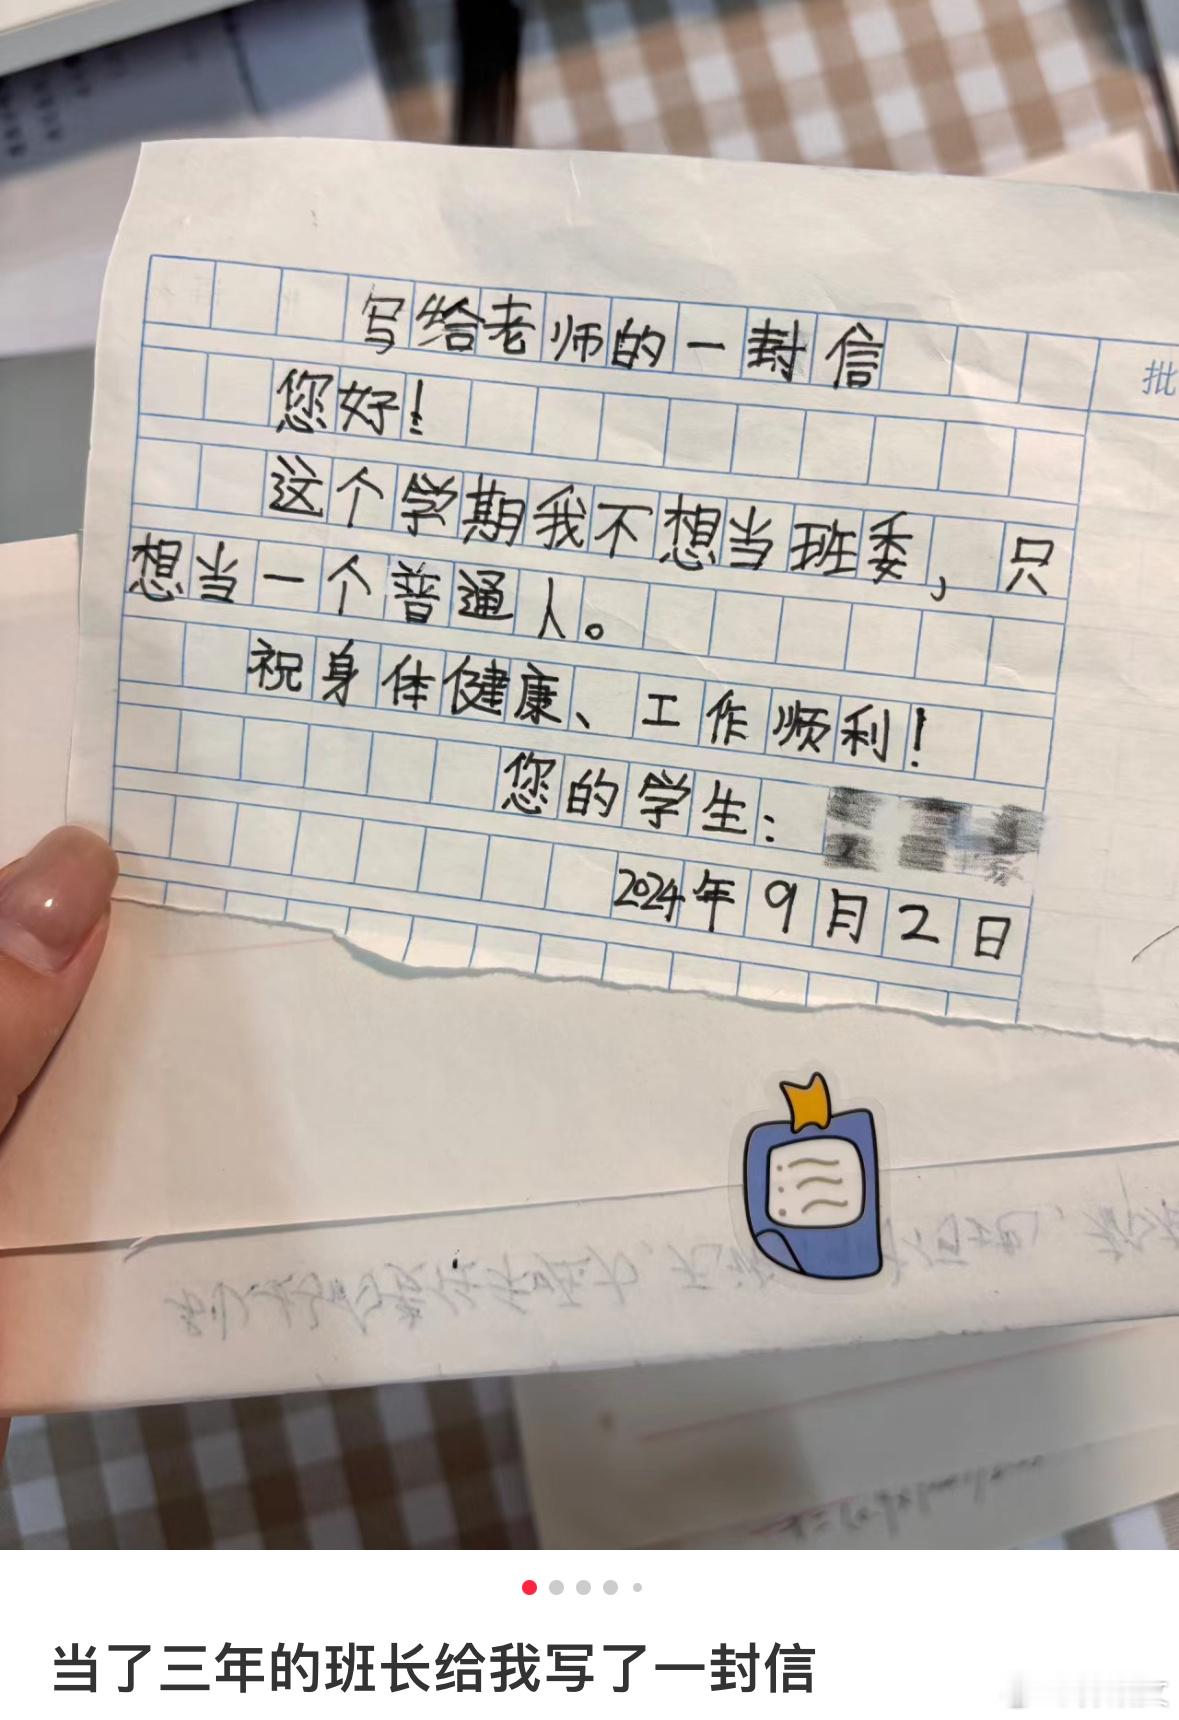 写给老师的一封信
批
您好!
这个学期我不想当班委,只
想当一个普通人。
祝身体健康、工作顺利!
您的学生:
2024年9月2日
当了三年的班长给我写了一封信